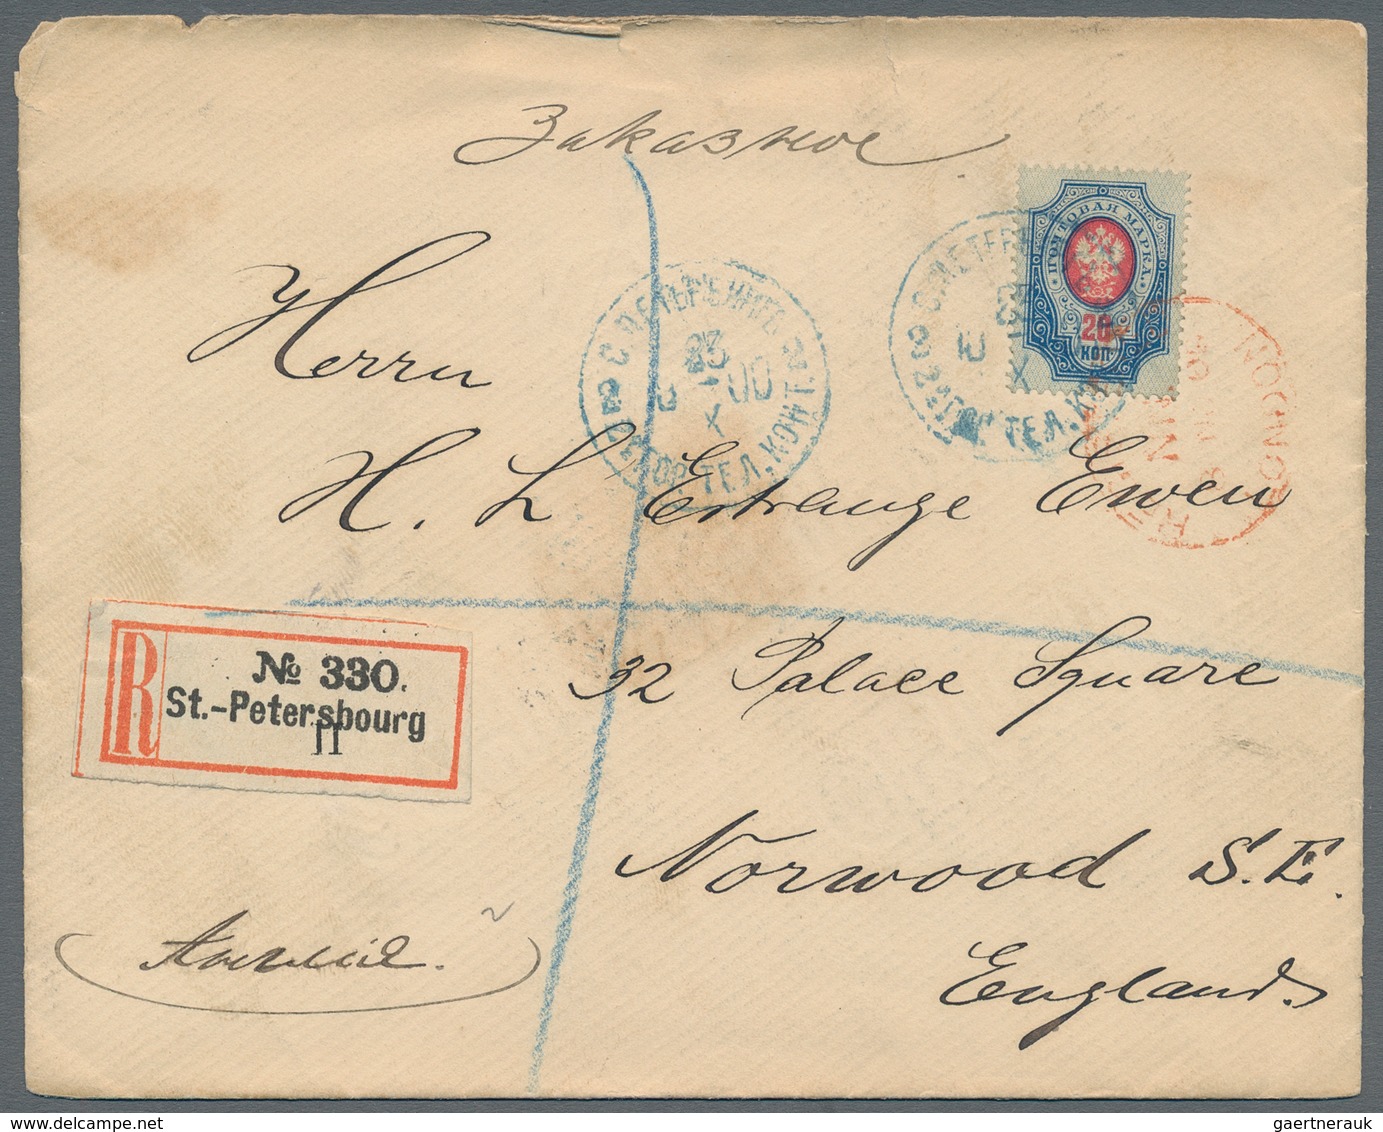 Заказное
ПОЧТОВАЯ МАРКА.
20
КОП
С.ПЕТЕРБУРГЪ
23
X
ГОР. ТЕЛ. КОНТ.
LONDON
Herrn
H. L Estrange Ewen
32 Palace Square
Norwood S.E.
England.
R
№ 330.
St.-Petersbourg
II
Англія.
gaertnerauk